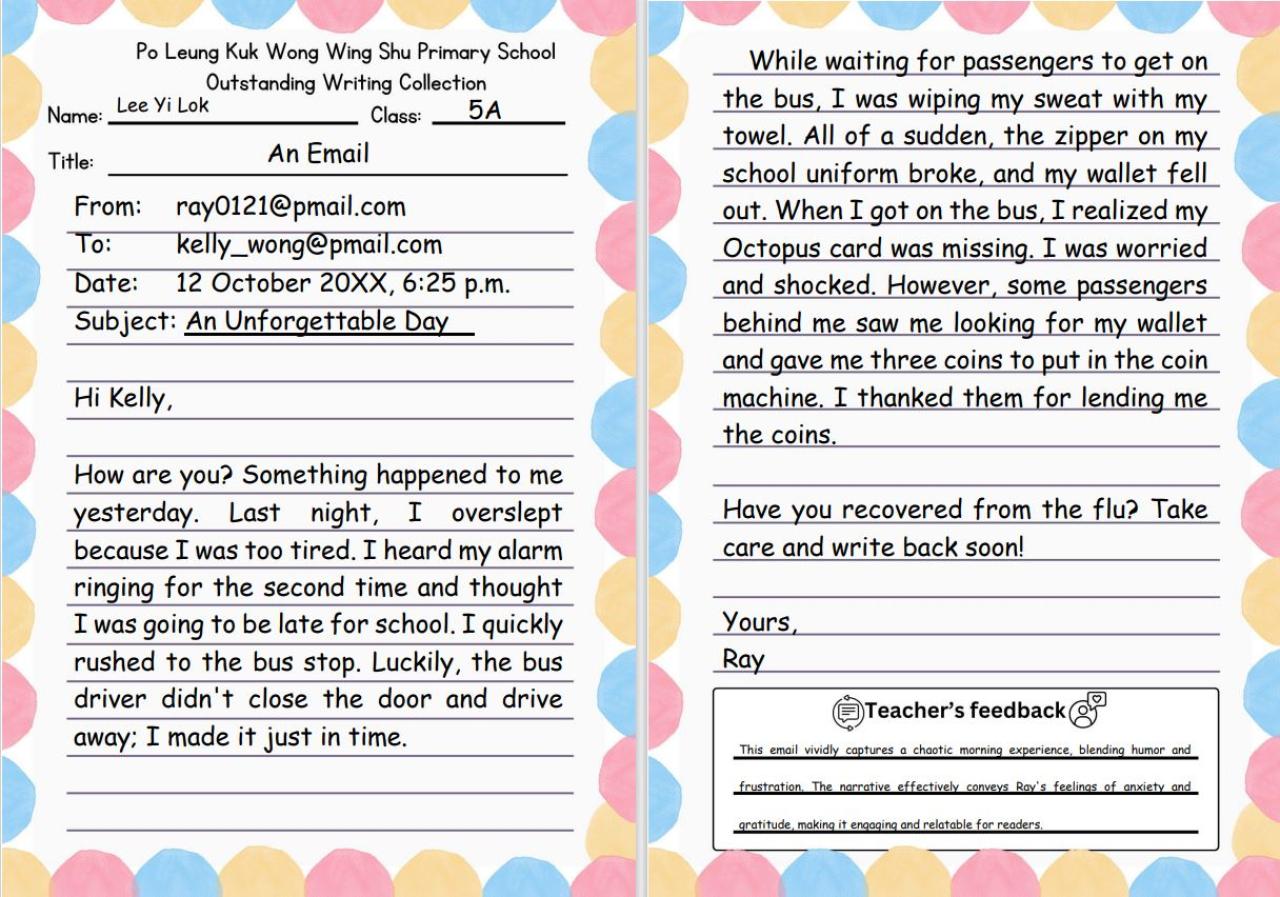 Po Leung Kuk Wong Wing Shu Primary School
Outstanding Writing Collection
Name: Lee Yi Lok Class: 5A
Title: An Email
From: ray0121@pmail.com
To: kelly_wong@pmail.com
Date: 12 October 20XX, 6:25 p.m.
Subject: An Unforgettable Day
Hi Kelly,
How are you? Something happened to me
yesterday. Last night, I overslept
because I was too tired. I heard my alarm
ringing for the second time and thought
I was going to be late for school. I quickly
rushed to the bus stop. Luckily, the bus
driver didn't close the door and drive
away; I made it just in time.
While waiting for passengers to get on
the bus, I was wiping my sweat with my
towel. All of a sudden, the zipper on my
school uniform broke, and my wallet fell
out. When I got on the bus, I realized my
Octopus card was missing. I was worried
and shocked. However, some passengers
behind me saw me looking for my wallet
and gave me three coins to put in the coin
machine. I thanked them for lending me
the coins.
Have you recovered from the flu? Take
care and write back soon!
Yours,
Ray
Teacher's feedback
This email vividly captures a chaotic morning experience, blending humor and
frustration. The narrative effectively conveys Ray's feelings of anxiety and
gratitude, making it engaging and relatable for readers.